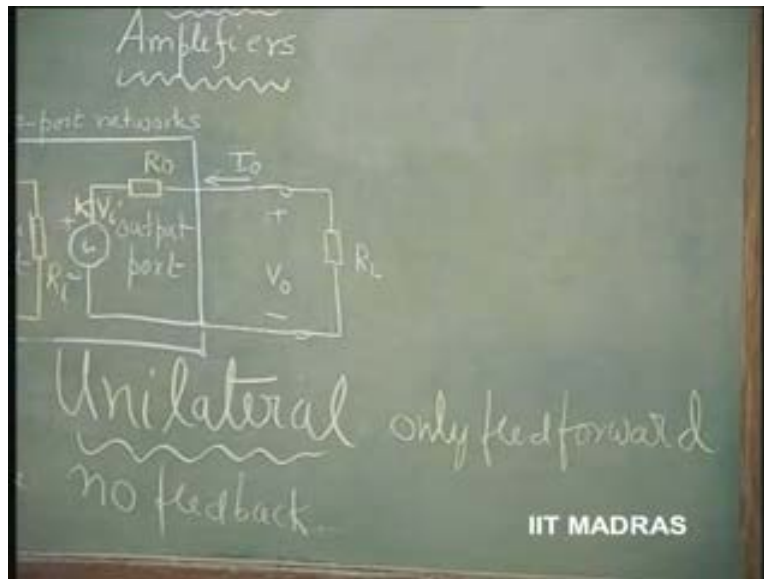 Amplifiers
-port networks
Ro
Io
+
+
KVi
output
port
Ri
-
Vo
-
RL
Unilateral only feedforward
no feedback
IIT MADRAS